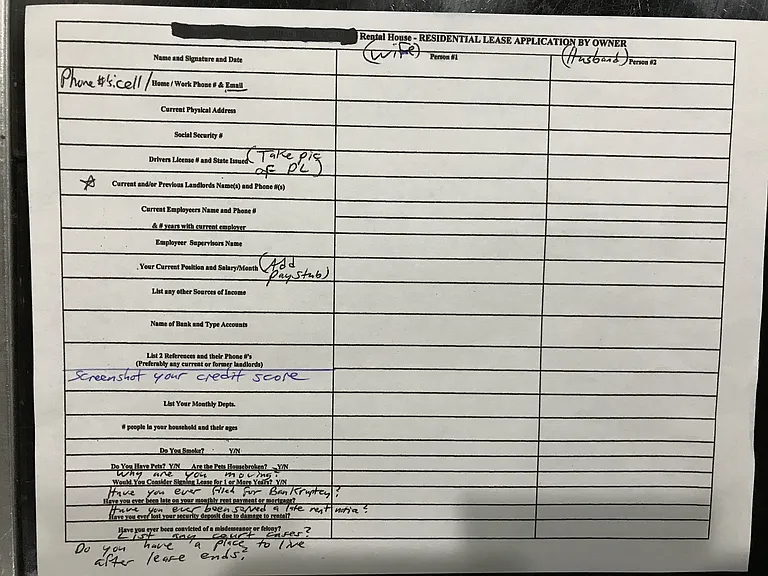 Rental House - RESIDENTIAL LEASE APPLICATION BY OWNER
Name and Signature and Date (Wife) Person #1 (Husband) Person #2
Phone #'s: cell / Home / Work Phone # & Email
Current Physical Address
Social Security #
Drivers License # and State Issued (Take pic
of DL)
☆ Current and/or Previous Landlords Name(s) and Phone #(s)
Current Employeers Name and Phone #
& # years with current employer
Employeer Supervisors Name
Your Current Position and Salary/Month (Add
paystub)
List any other Sources of Income
Name of Bank and Type Accounts
List 2 References and their Phone #'s
(Preferably any current or former landlords)
Screenshot your credit score
List Your Monthly Depts.
# people in your household and their ages
Do You Smoke? Y/N
Do You Have Pets? Y/N Are the Pets Housebroken? Y/N
Why are you moving?
Would You Consider Signing Lease for 1 or More Years? Y/N
Have you ever filed for Bankruptcy?
Have you ever been late on your monthly rent payment or mortgage?
Have you ever been served a late rent notice?
Have you ever lost your security deposit due to damage to rental?
Have you ever been convicted of a misdemeanor or felony?
List any court cases?
Do you have a place to live
after lease ends?